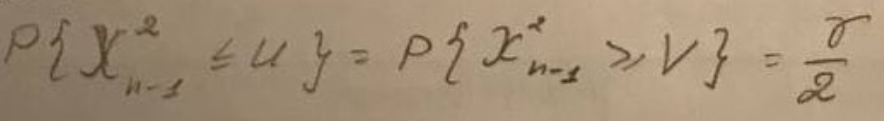 P{χ²ₙ₋₁ ≤ u} = P{χ²ₙ₋₁ ≥ V} = γ/2